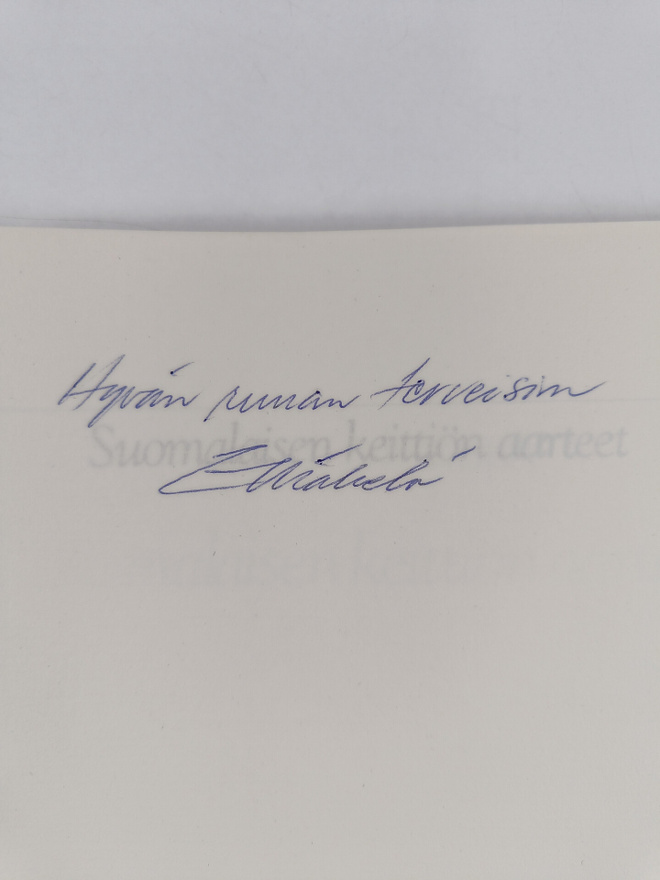 Hyvän ruuan terveisin
Suomalaisen keittiön aarteet
Mäkelä